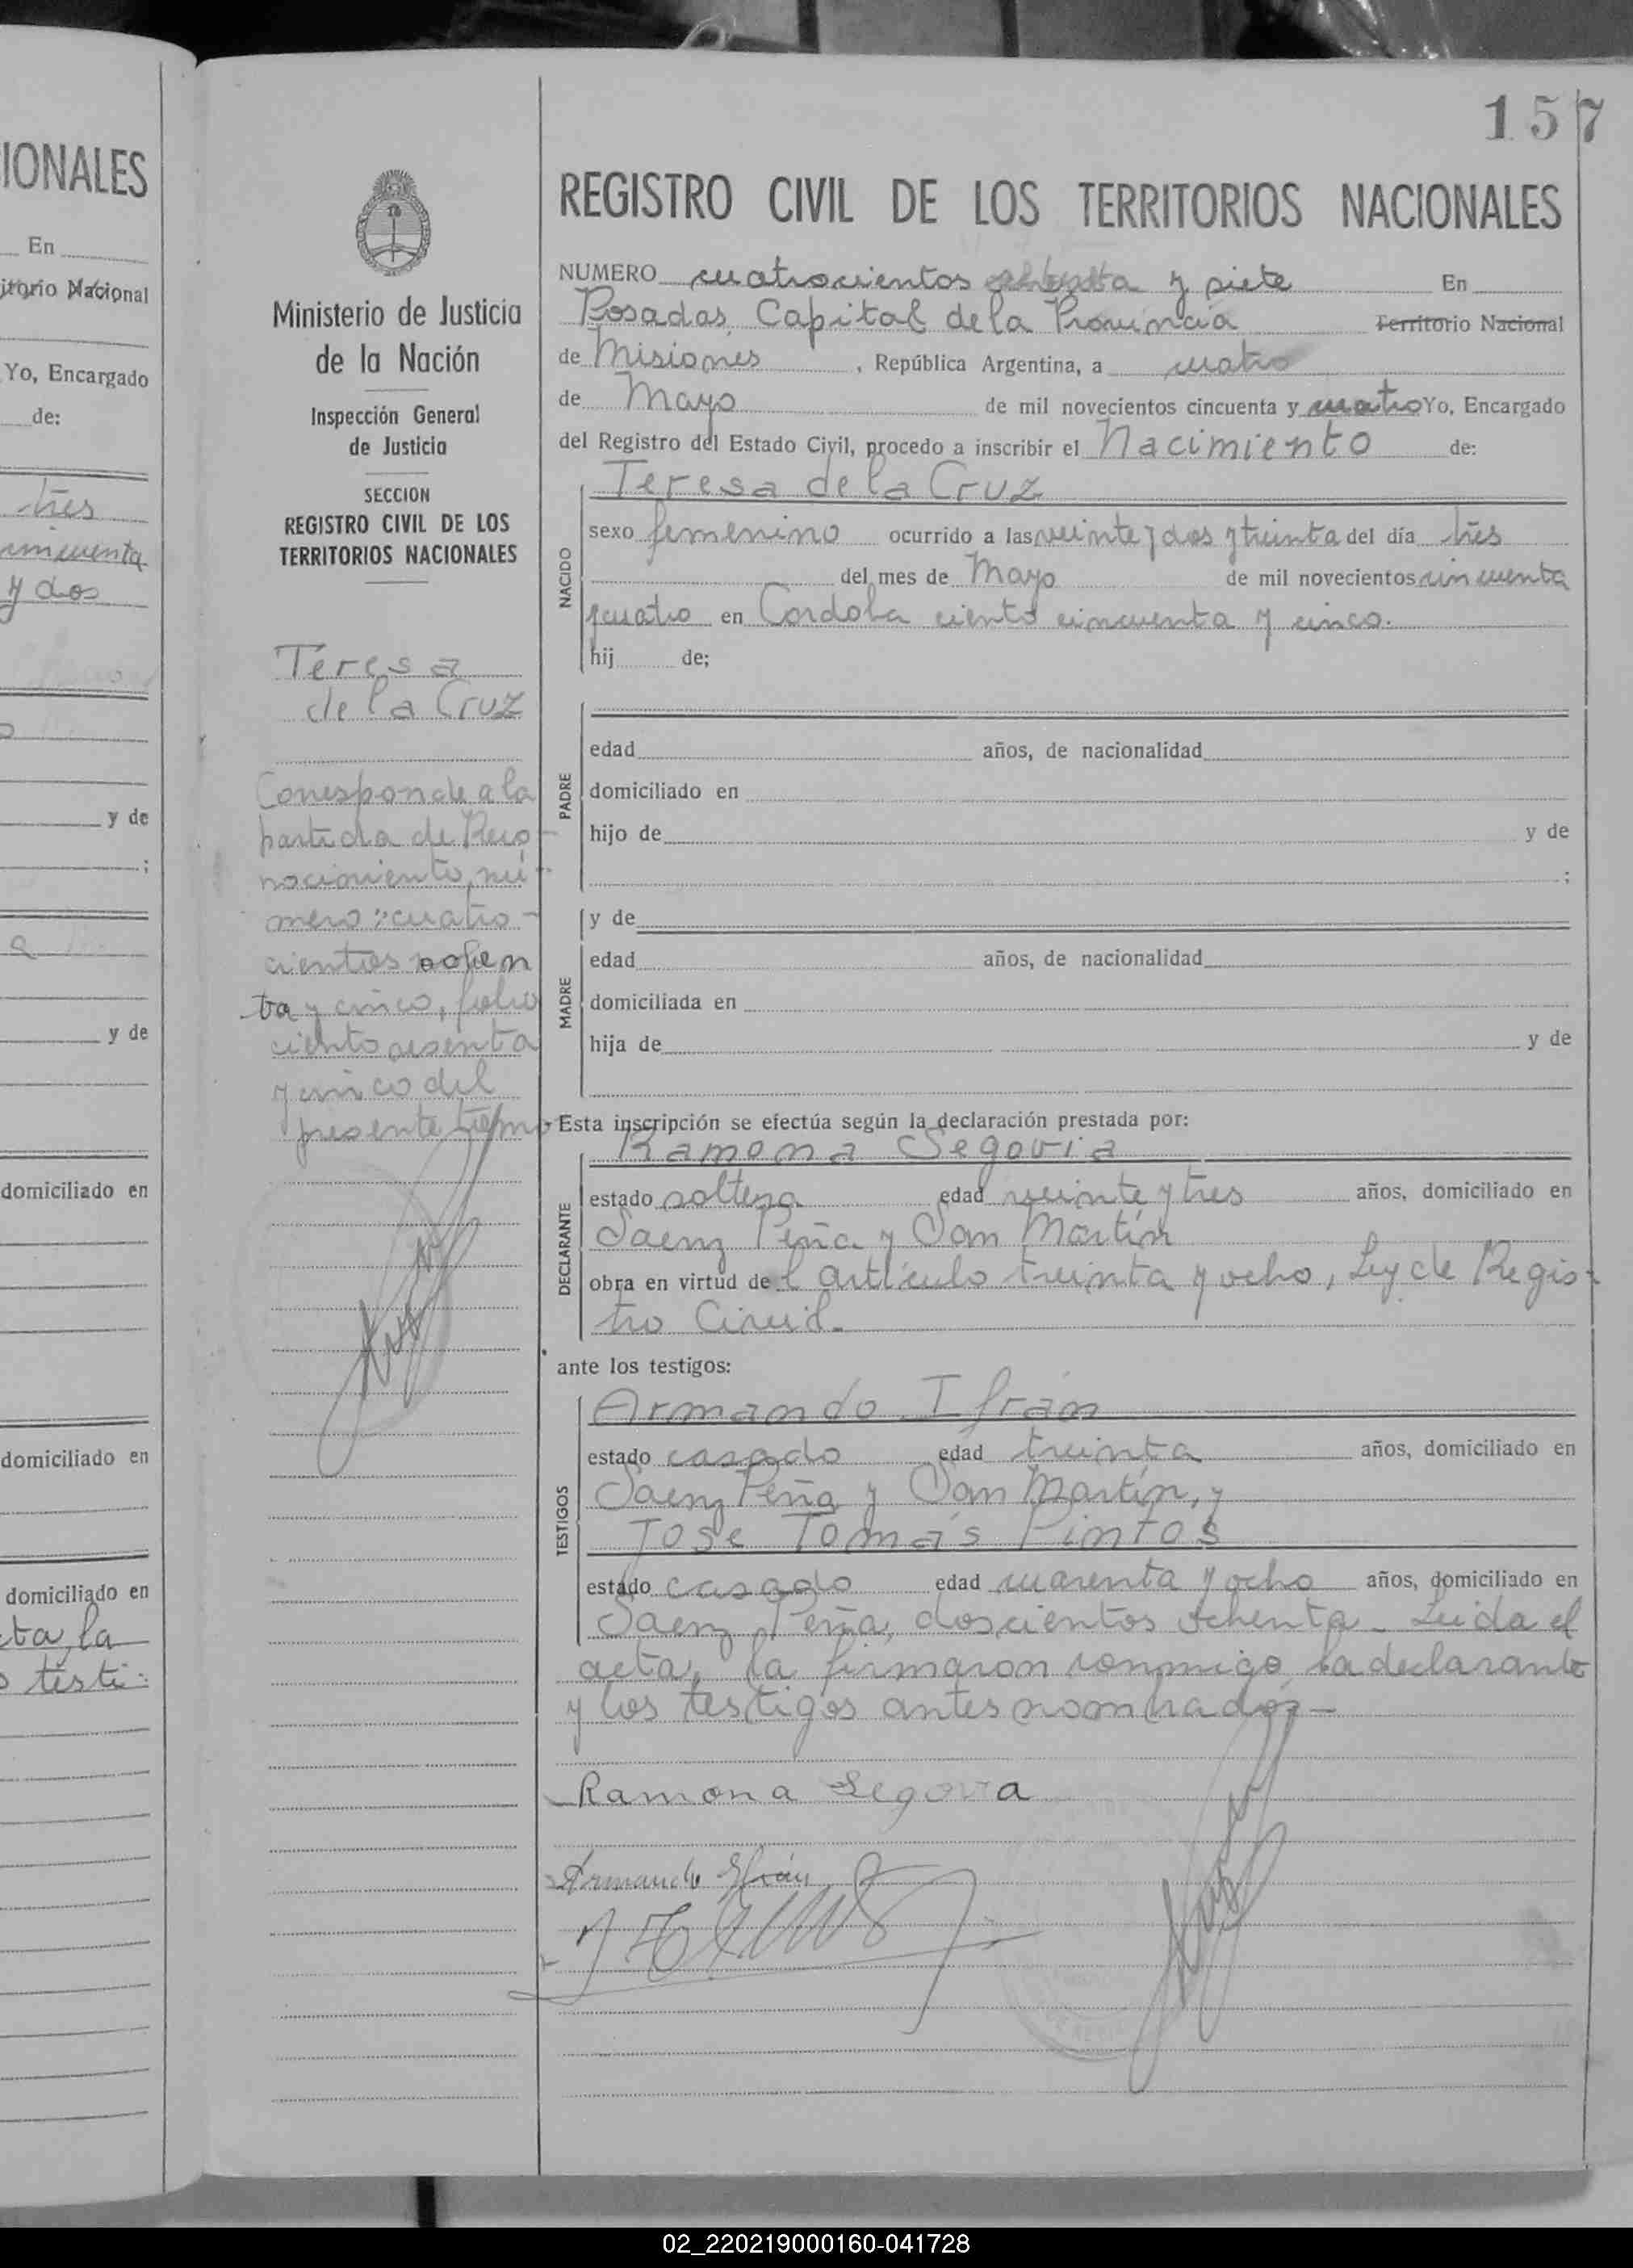 IONALES
En
itorio Nacional
Yo, Encargado
de:
tres
cincuenta
y dos
y de
;
a
y de
domiciliado en
domiciliado en
domiciliado en
cta, la
testi-
Ministerio de Justicia
de la Nación
Inspección General
de Justicia
SECCION
REGISTRO CIVIL DE LOS
TERRITORIOS NACIONALES
Teresa
de la Cruz
Corresponde a la
partida de Reco-
nocimiento, nú-
mero: cuatro-
cientos ochen
ta y cinco, folio
ciento sesenta
y cinco del
presente tomo
157
REGISTRO CIVIL DE LOS TERRITORIOS NACIONALES
NUMERO cuatrocientos y siete En
Posadas, Capital de la Provincia Territorio Nacional
de Misiones, República Argentina, a cuatro
de Mayo de mil novecientos cincuenta y cuatro Yo, Encargado
del Registro del Estado Civil, procedo a inscribir el Nacimiento de:
Teresa de la Cruz
NACIDO
sexo femenino ocurrido a las veinte y dos y treinta del día tres
del mes de Mayo de mil novecientos cincuenta
y cuatro en Cordoba ciento cincuenta y cinco.
hij de;
PADRE
edad años, de nacionalidad
domiciliado en
hijo de y de
;
y de
MADRE
edad años, de nacionalidad
domiciliada en
hija de y de
Esta inscripción se efectúa según la declaración prestada por:
Ramona Segovia
DECLARANTE
estado soltera edad veinte y tres años, domiciliado en
Saenz Peña y San Martín
obra en virtud del artículo treinta y ocho, Ley de Regis-
tro Civil.
ante los testigos:
Armando Ifrán
TESTIGOS
estado casado edad treinta años, domiciliado en
Saenz Peña y San Martín, y
José Tomás Pintos
estado casado edad cuarenta y ocho años, domiciliado en
Saenz Peña, doscientos ochenta. Leida el
acta, la firmaron conmigo la declarante
y los testigos antes nombrados—
Ramona Segovia
Armando Ifrán
02_220219000160-041728